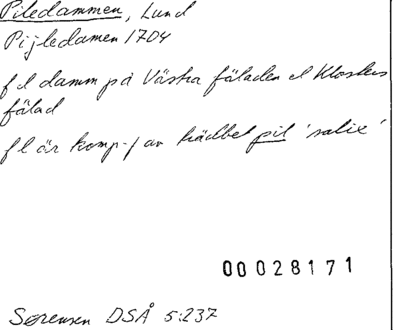 Piledammen, Lund
Pijledamen 1704
f d damm på Västra fäladen el Klosters
fälad
f l är komp-f av trädbet pil 'salix'
00028171
Sørensen DSÅ 5:237